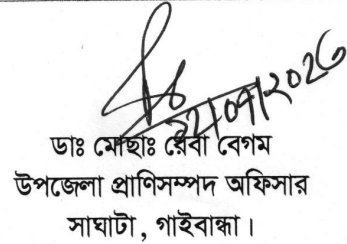 22/04/2026
ডাঃ মোছাঃ রেবা বেগম
উপজেলা প্রাণিসম্পদ অফিসার
সাঘাটা, গাইবান্ধা।